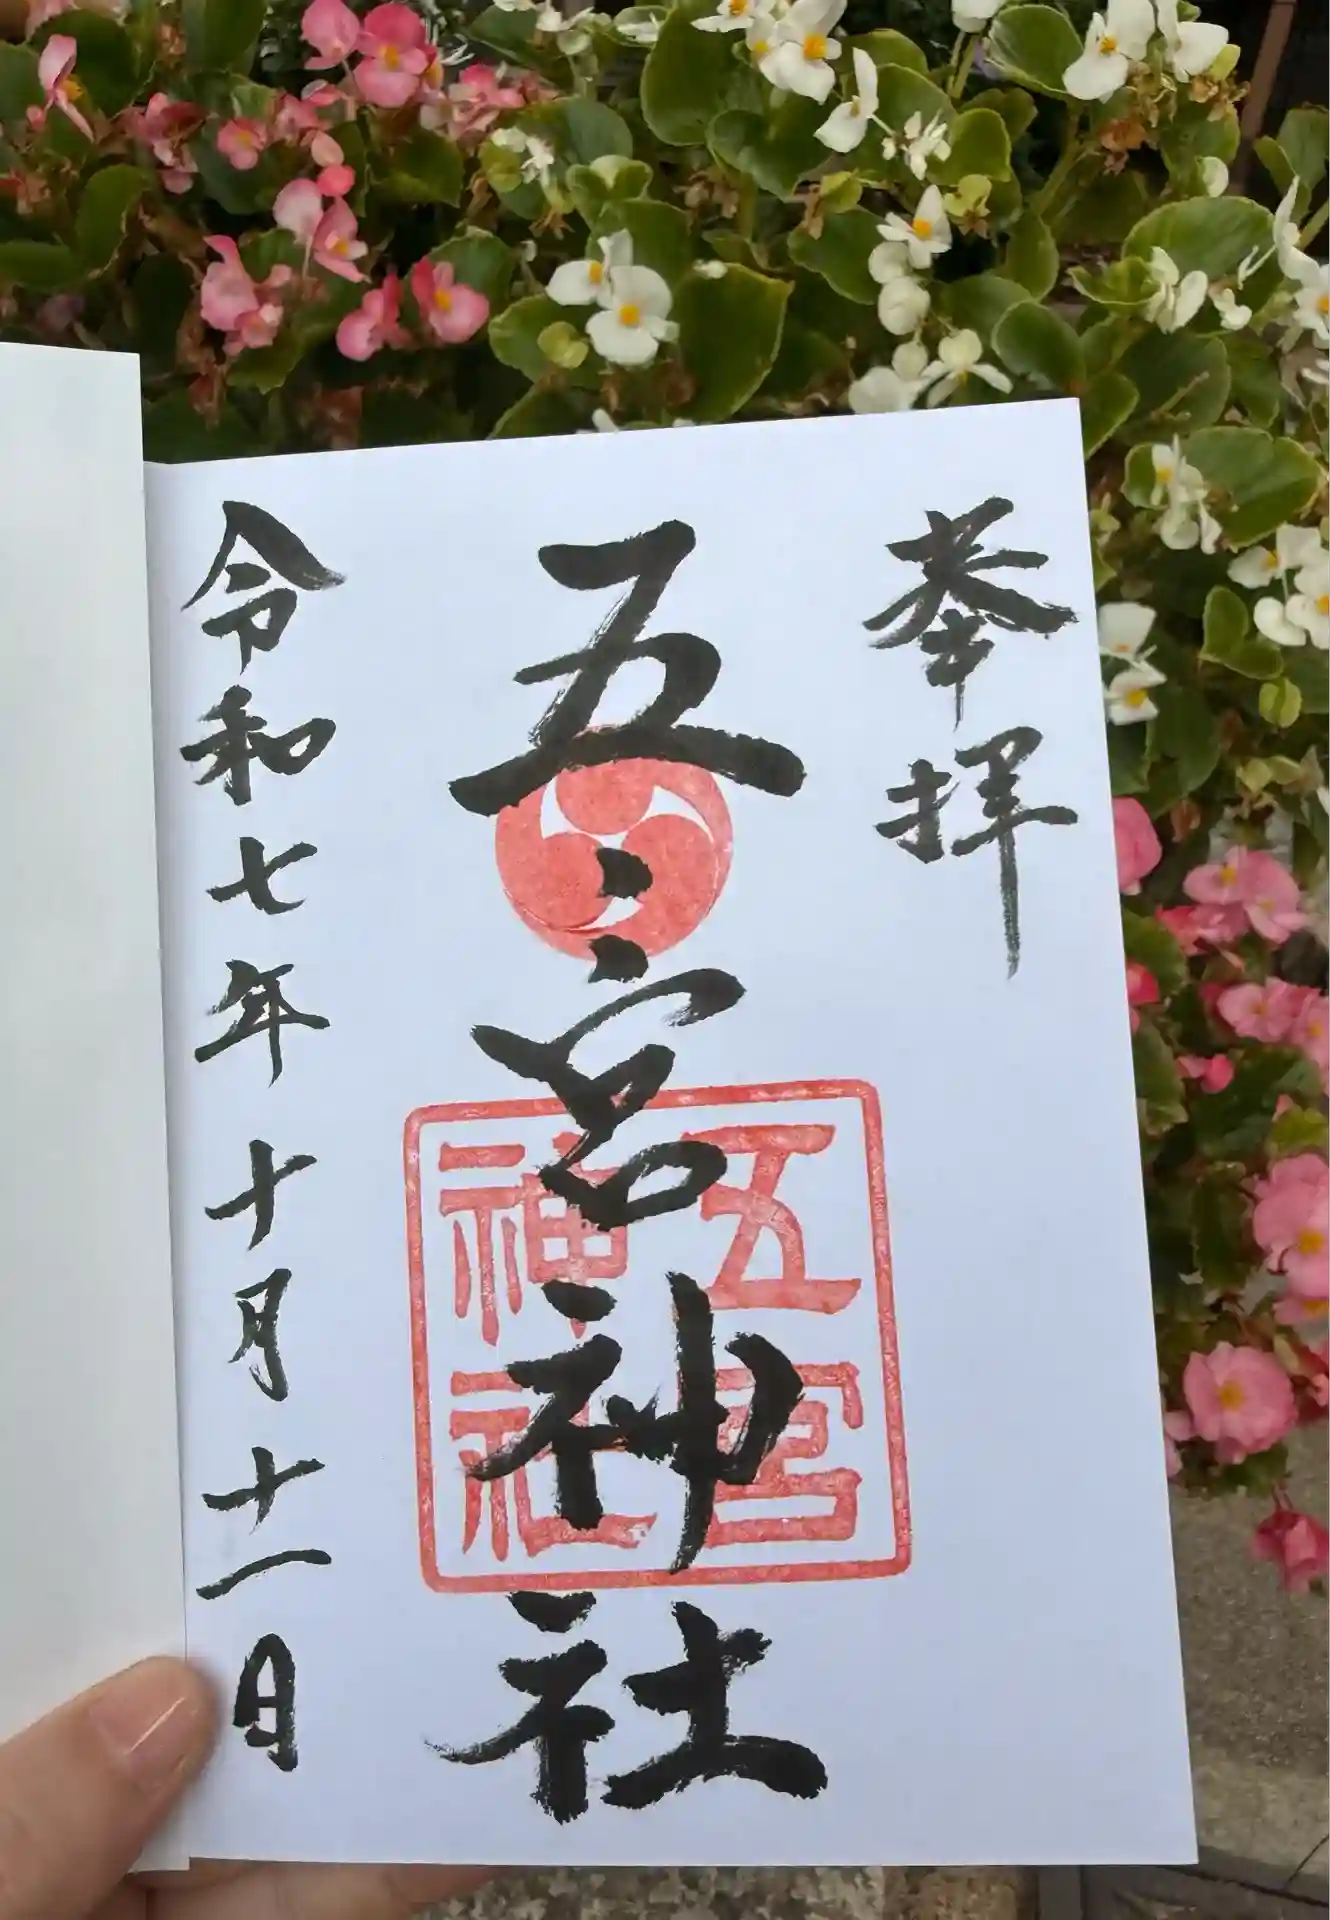 奉拝
五宮神社
五宮
神社
令和七年十月十一日